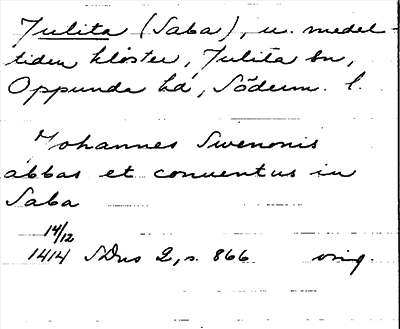 Julita (Saba), u. medel-
tiden kloster, Julita sn,
Oppunda hd, Söderm. l.
Johannes Swenonis
abbas et conuentus in
Saba
14/12
1414 SDns 2, s. 866 orig.